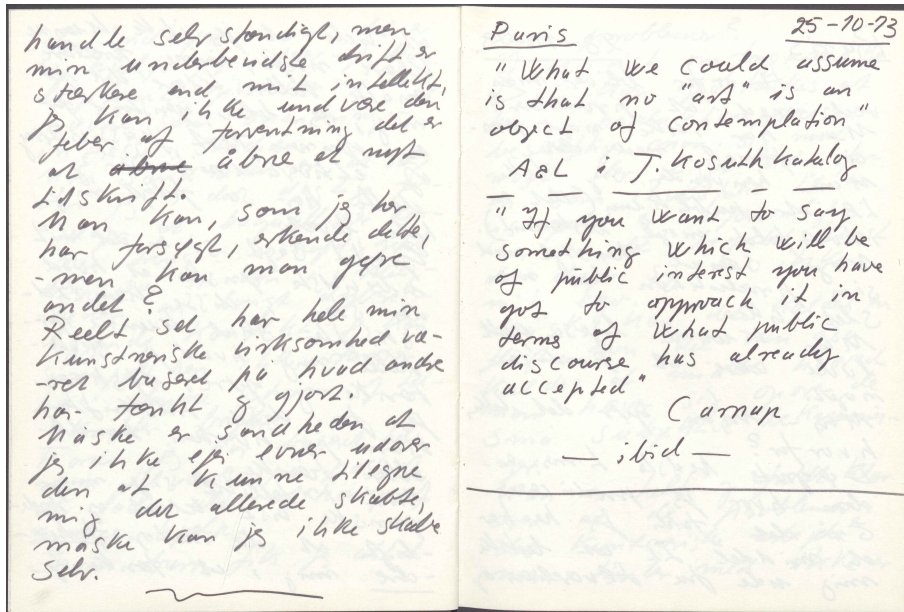 handle selvstændigt, men
min underbevidste drift er
stærkere end mit intellekt,
jeg kan ikke undvære den
feber af forventning det er
at åbne et nyt
tidskrift.
Man kan, som jeg her
har forsøgt, erkende dette,
-men kan man gøre
andet?
Reelt set har hele min
kunstneriske virksomhed væ-
-ret baseret på hvad andre
har tænkt og gjort.
Måske er sandheden at
jeg ikke ejer evner udover
den at kunne tilegne
mig det allerede skabte,
måske kan jeg ikke skabe
selv.
Paris 25-10-73
"What we could assume
is that no "art" is an
object of contemplation"
A&L i J. Kosuth Katalog
"If you want to say
something which will be
of public interest you have
got to approach it in
terms of what public
discourse has already
accepted"
Carnap
— ibid —